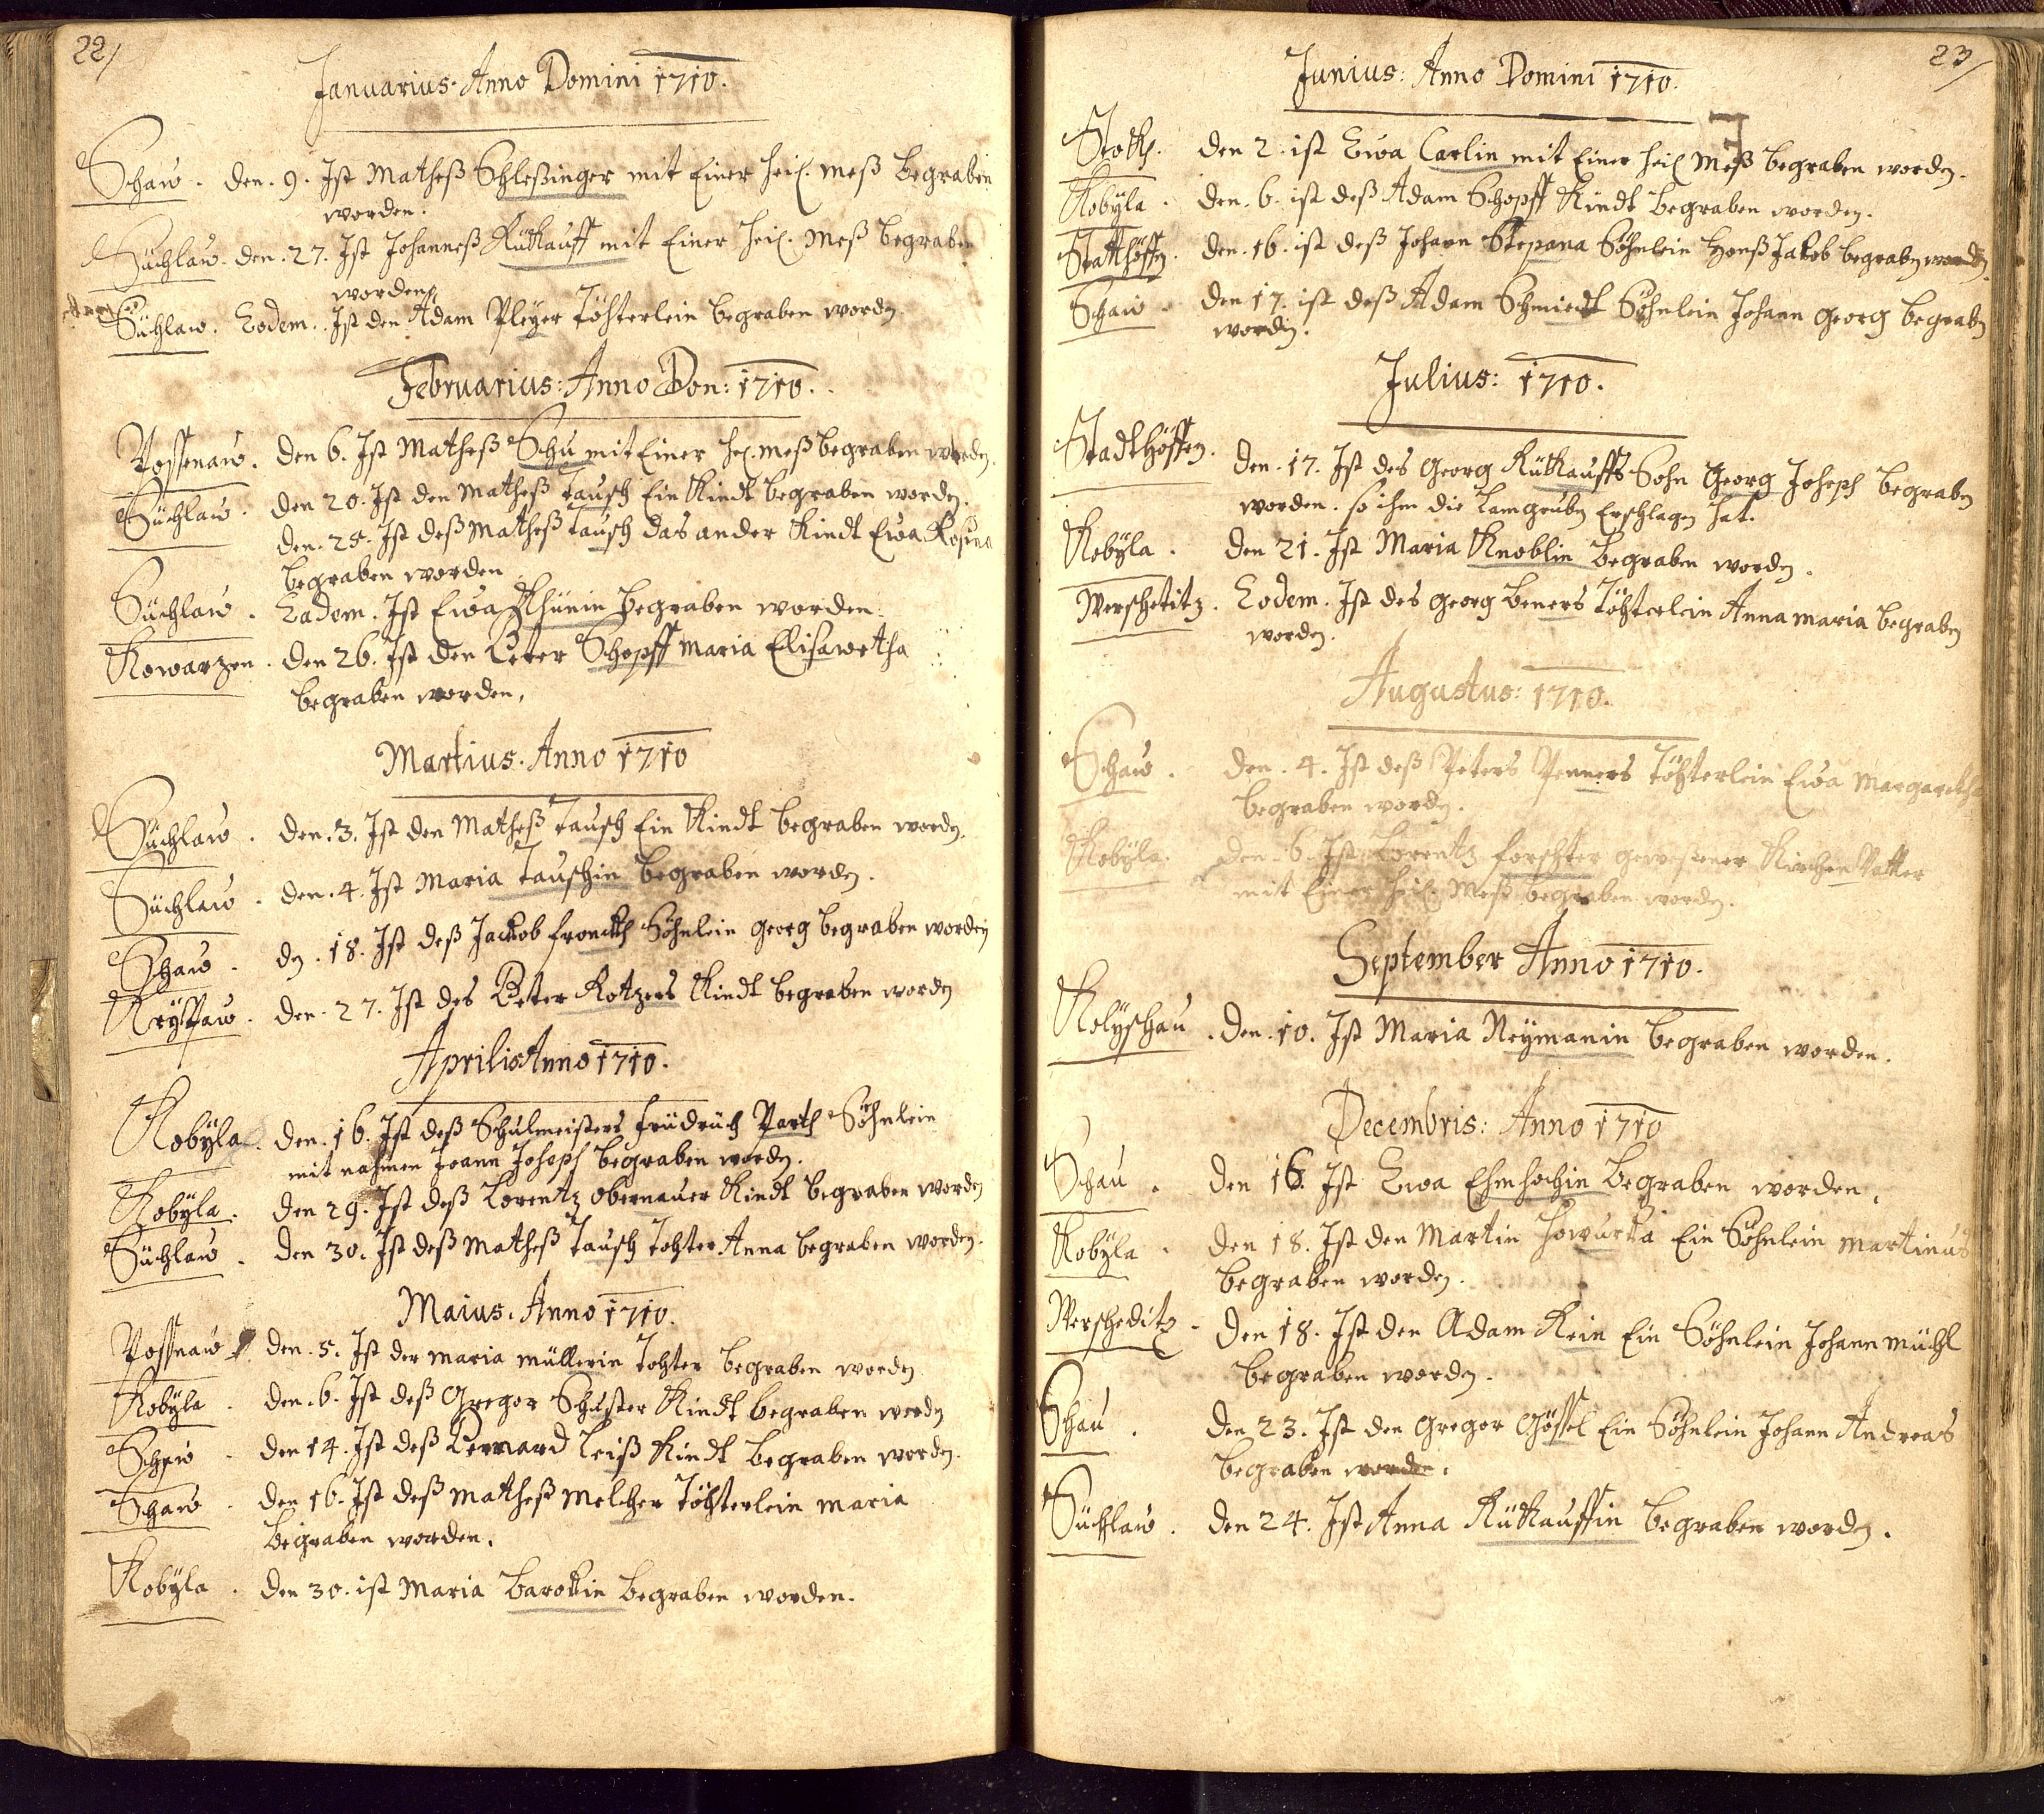 22/
Januarius. Anno Domini 1710.
Schaw. den. 9. Ist Matheß Schleßinger mit Einer heil. Meß begraben
worden.
Süchlaw. den. 27. Ist Johanneß Rüttauff mit Einer heil. Meß begraben
worden.
Süchlaw. Eodem. Ist den Adam Pleÿer Töhterlein begraben worden.
Februarius: Anno Dom: 1710.
Possenaw. den 6. Ist Matheß Schu mit Einer hei. Meß begraben worden.
Süchlaw. den 20. Ist den Matheß Tausch Ein Kindt begraben worden.
den. 25. Ist deß Matheß Tausch das ander Kindt Ewa Rosina
begraben worden
Süchlaw. Eadem. Ist Ewa begraben worden.
Kowarzen. den 26. Ist den Peter Schopff Maria Elisawetha
begraben worden.
Martius. Anno 1710
Süchlaw. den. 3. Ist den Matheß Tausch Ein Kindt begraben worden.
Süchlaw. den. 4. Ist Maria Tauschin begraben worden.
Schaw. den. 18. Ist deß Jackob Söhnlein Georg begraben worden
den. 27. Ist des Peter Kotzers Kindt begraben worden
Aprilis Anno 1710.
Kobÿla. den. 16. Ist deß Schulmeisters Früdrüch Parth Söhnlein
mit nahmen Joann Joheph begraben worden.
Kobÿla. den 29. Ist deß Lorentz obernauer Kindt begraben worden
Süchlaw. den 30. Ist deß Matheß Tausch Tohter Anna begraben worden.
Maius. Anno 1710.
Possnaw. den. 5. Ist der Maria Müllerin Tohter begraben worden
Kobÿla. den. 6. Ist deß Gregor Schuster Kindt begraben worden
Schaw. den 14. Ist deß Bernard Leiß Kindt begraben worden.
Schaw. den 16. Ist deß Matheß Melcher Töhterlein Maria
begraben worden.
Kobÿla. den 30. ist Maria begraben worden.
23/
Junius: Anno Domini 1710.
den 2. ist Ewa Carlin mit Einer heil Meß begraben worden.
Kobÿla. den. 6. ist deß Adam Schopff Kindt begraben worden.
Statthöffen. den. 16. ist deß Johann Stepana Söhnlein Hanß Jakob begraben worden.
Schaw. den 17. ist deß Adam Schmiedt Söhnlein Johann Georg begraben
worden.
Julius: 1710.
Stadthöffen. den. 17. Ist des Georg Rüttauffs Sohn Georg Joheph begraben
worden. so ihm die Lamgruben Erschlagen hat.
Kobÿla. den 21. Ist Maria Knoblin begraben worden.
Werschetitz. Eodem. Ist des Georg Beners Töhterlein Anna Maria begraben
worden.
Augustus: 1710.
Schaw. den. 4. Ist deß Peters Penners Töhterlein Ewa Margaretha
begraben worden.
Kobÿla. den. 6. Ist Lorentz Forschter geweßener Kirchen Vatter
mit Einer heil. Meß begraben worden.
September Anno 1710.
Kolÿschau. den. 10. Ist Maria Neÿmanin begraben worden.
Decembris: Anno 1710
Schau. den 16. Ist Ewa begraben worden.
Kobÿla. den 18. Ist den Martin Howurka Ein Söhnlein Martinus
begraben worden.
Werscheditz. den 18. Ist den Adam Kein Ein Söhnlein Johann Müchl
begraben worden.
Schau. den 23. Ist den Gregor Gössel Ein Söhnlein Johann Andreas
begraben worden.
Süchlaw. den 24. Ist Anna Rüttauffin begraben worden.